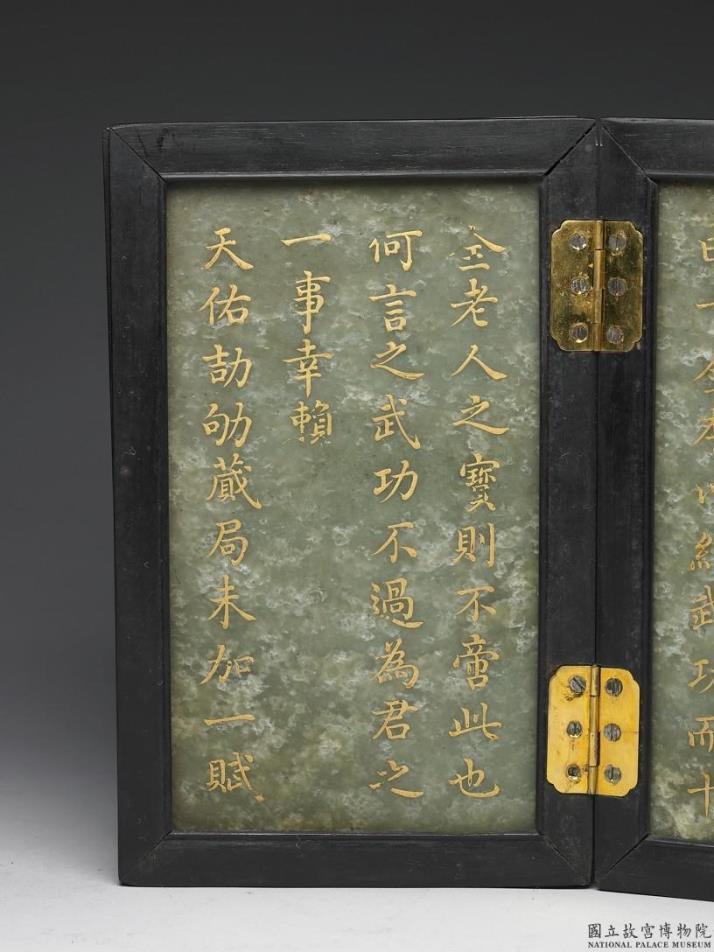 曰十全本以紀武功而十
全老人之寶則不啻此也
何言之武功不過為君之
一事幸賴
天佑劼劬蕆局未加一賦
國立故宮博物院
NATIONAL PALACE MUSEUM